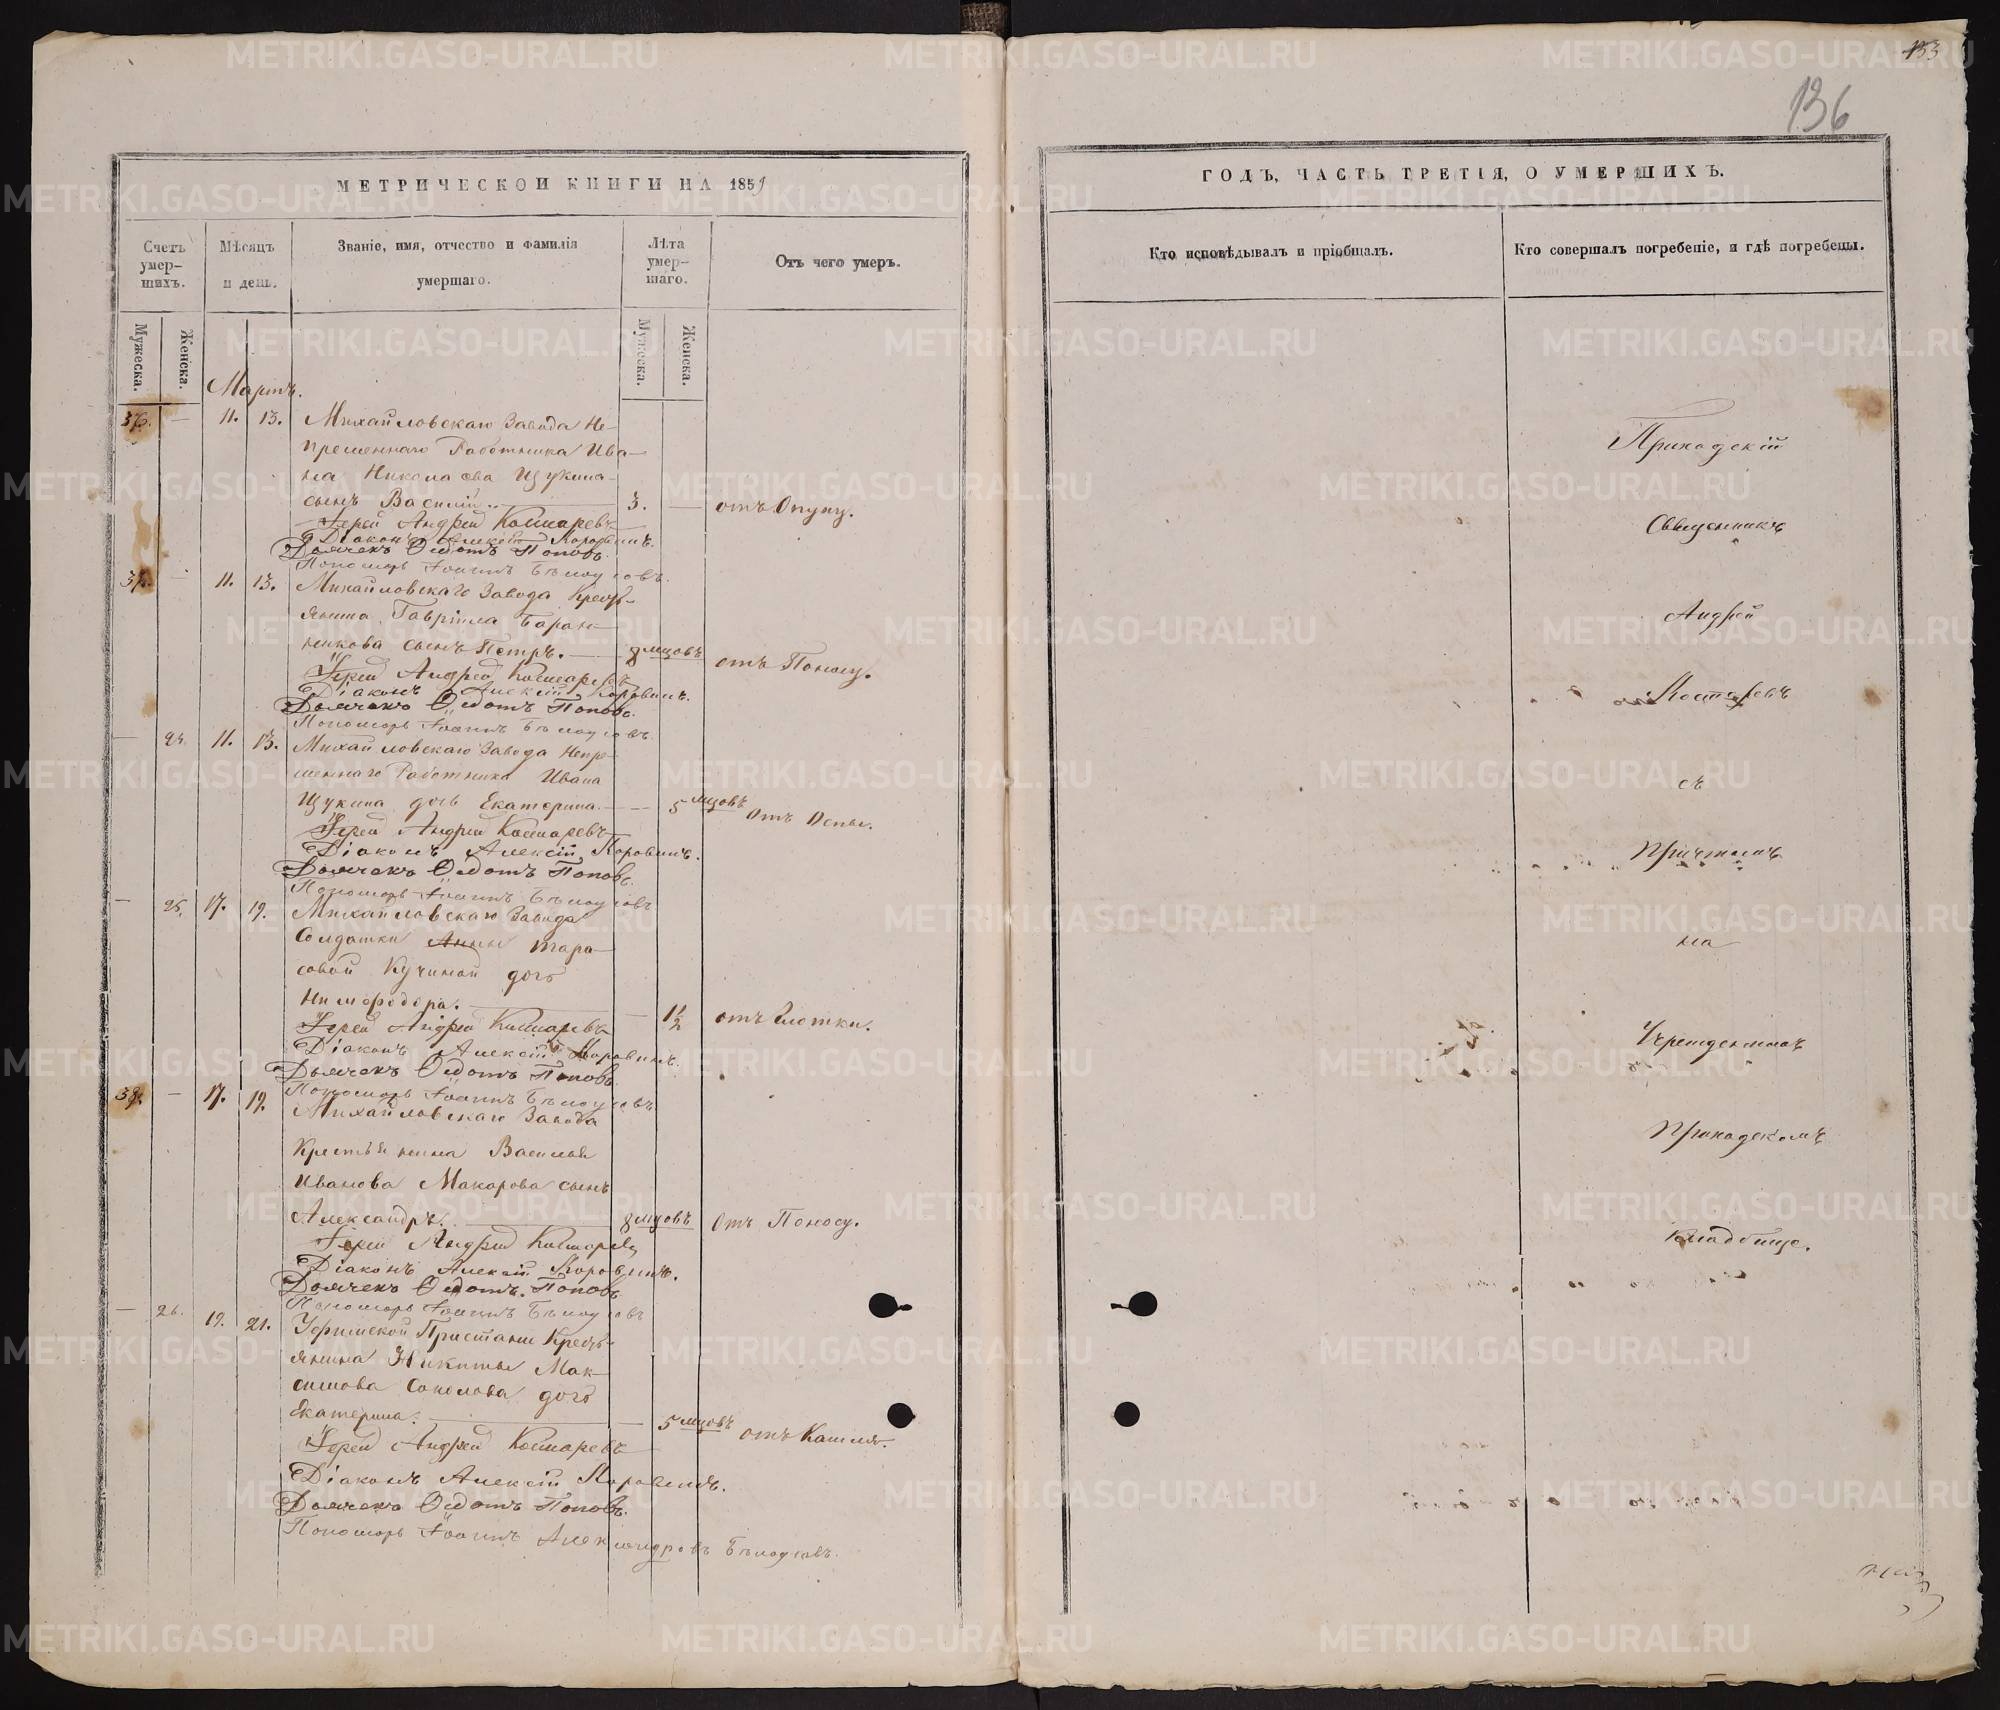 133
136
МЕТРИЧЕСКОЙ КНИГИ НА 1859
Счетъ умер-шихъ.
Мѣсяцъ и день.
Званіе, имя, отчество и фамилія умершаго.
Лѣта умер-шаго.
Отъ чего умеръ.
Мужеска. Женска.
Мужеска. Женска.
Мартъ.
36. — 11. 13. Михайловскаго Завода Не-
пременнаго Работника Ива-
на Николаева Щукина
сынъ Василій. 3. — отъ Опуху.
Іерей Андрей Костаревъ
Діаконъ Алексѣй Коровинъ.
Дьячекъ Ѳедотъ Поповъ.
Пономарь Іоаннъ Бѣлоусовъ.
37. — 11. 13. Михайловскаго Завода Кресть-
янина Гавріила Баран-
никова сынъ Петръ. 8 мцовъ отъ Поносу.
Іерей Андрей Костаревъ
Діаконъ Алексій Коровинъ.
Дьячекъ Ѳедотъ Поповъ.
Пономарь Іоаннъ Бѣлоусовъ.
— 24. 11. 13. Михайловскаго Завода Непре-
меннаго Работника Ивана
Щукина дочь Екатерина. — 5 мцовъ отъ Оспы.
Іерей Андрей Костаревъ
Діаконъ Алексій Коровинъ.
Дьячекъ Ѳедотъ Поповъ.
Пономарь Іоаннъ Бѣлоусовъ
— 25. 17. 19. Михайловскаго Завода
Солдатки Анны Тара-
совой Кучиной дочь
Нимфодора. — 1 1/2 отъ Глотки.
Іерей Андрей Костаревъ
Діаконъ Алексій Коровинъ.
Дьячекъ Ѳедотъ Поповъ.
Пономарь Іоаннъ Бѣлоусовъ
38. — 17. 19. Михайловскаго Завода
Крестьянина Василья
Иванова Макарова сынъ
Александръ. 8 мцовъ отъ Поносу.
Іерей Андрей Костаревъ
Діаконъ Алексій Коровинъ.
Дьячекъ Ѳедотъ Поповъ
Пономарь Іоаннъ Бѣлоусовъ
— 26. 19. 21. Уфимской Пристани Кресть-
янина Никиты Мак-
симова Соколова дочь
Екатерина. — 5 мцовъ отъ Кашля.
Іерей Андрей Костаревъ
Діаконъ Алексій Коровинъ.
Дьячекъ Ѳедотъ Поповъ.
Пономарь Іоаннъ Александровъ Бѣлоусовъ.
ГОДЪ, ЧАСТЬ ТРЕТІЯ, О УМЕРШИХЪ.
Кто исповѣдывалъ и пріобщалъ.
Кто совершалъ погребеніе, и гдѣ погребены.
Приходскій
Священникъ
Андрей
Костаревъ
съ
Причтомъ
на
Учрежденномъ
Приходскомъ
Кладбище.
METRIKI.GASO-URAL.RU